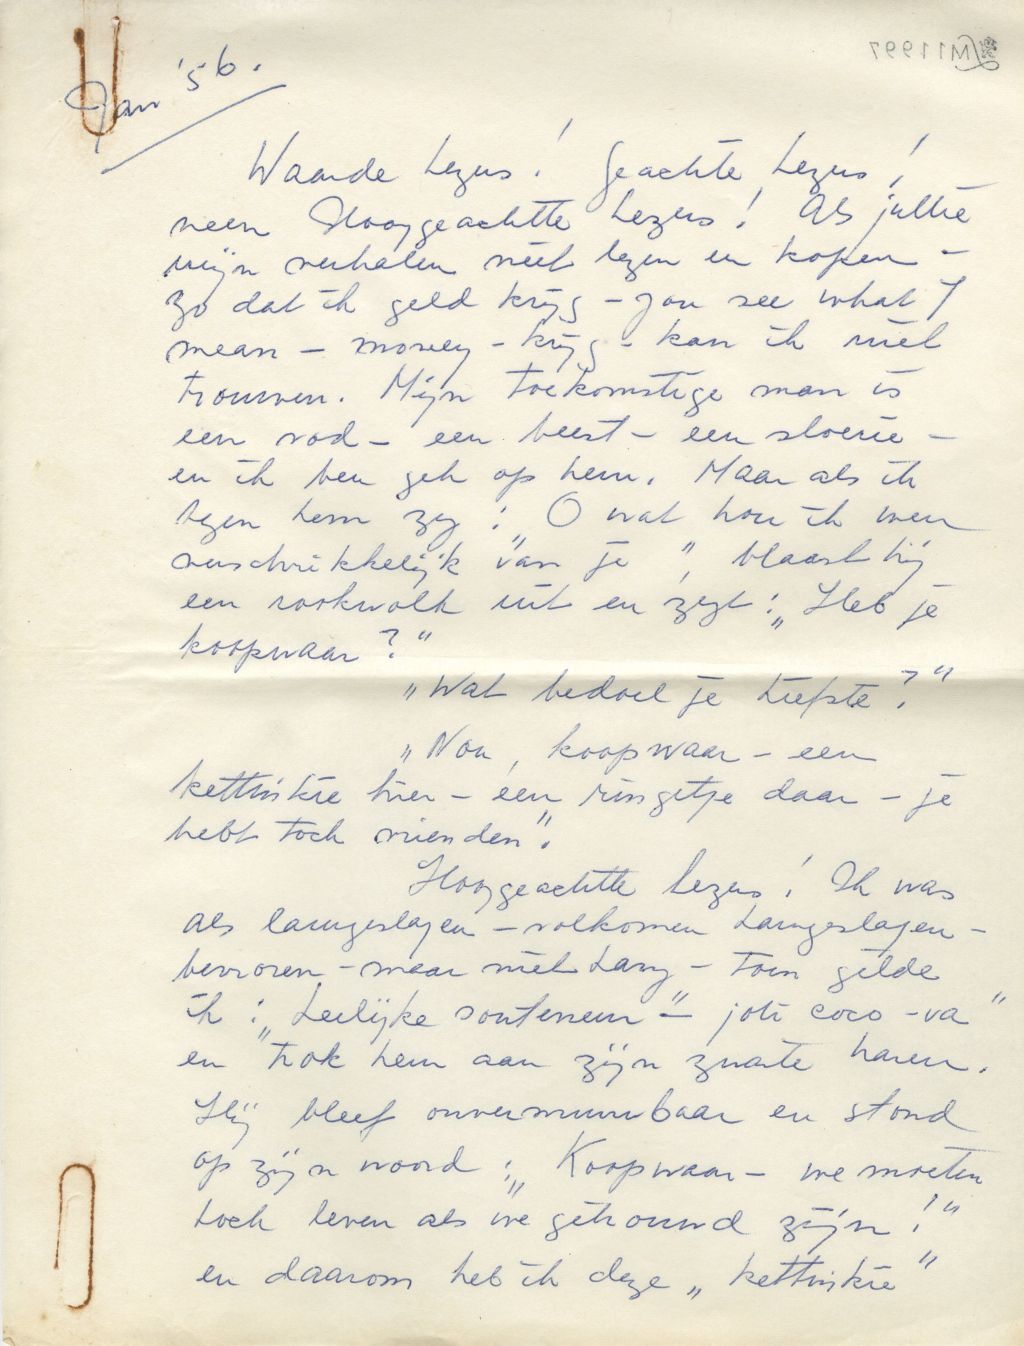 Jan '56.
LM11997
Waarde Lezers! Geachte Lezers!
neen Hooggeachtte Lezers! Als jullie
mijn verhalen niet lezen en kopen -
zo dat ik geld krijg - you see what I
mean - money - krijg - kan ik niet
trouwen. Mijn toekomstige man is
een vod - een beest - een sloerie -
en ik ben gek op hem. Maar als ik
tegen hem zeg: „O wat hou ik
verschrikkelijk van je", blaast hij
een rookwolk uit en zegt: „Heb je
koopwaar?"
„Wat bedoel je Liefste?"
„Nou, koopwaar - een
kettinkie hier - een ringetje daar - je
hebt toch vrienden".
Hooggeachtte Lezers! Ik was
als lamgeslagen - volkomen Lamgeslagen -
bevroren - maar niet Lang - toen gilde
ik: „Leelijke souteneur" - joti coco - va"
en trok hem aan zijn zwarte haren.
Hij bleef onvermurwbaar en stond
op zijn woord: „Koopwaar - we moeten
toch leven als we getrouwd zijn!"
en daarom heb ik deze „kettinkie"